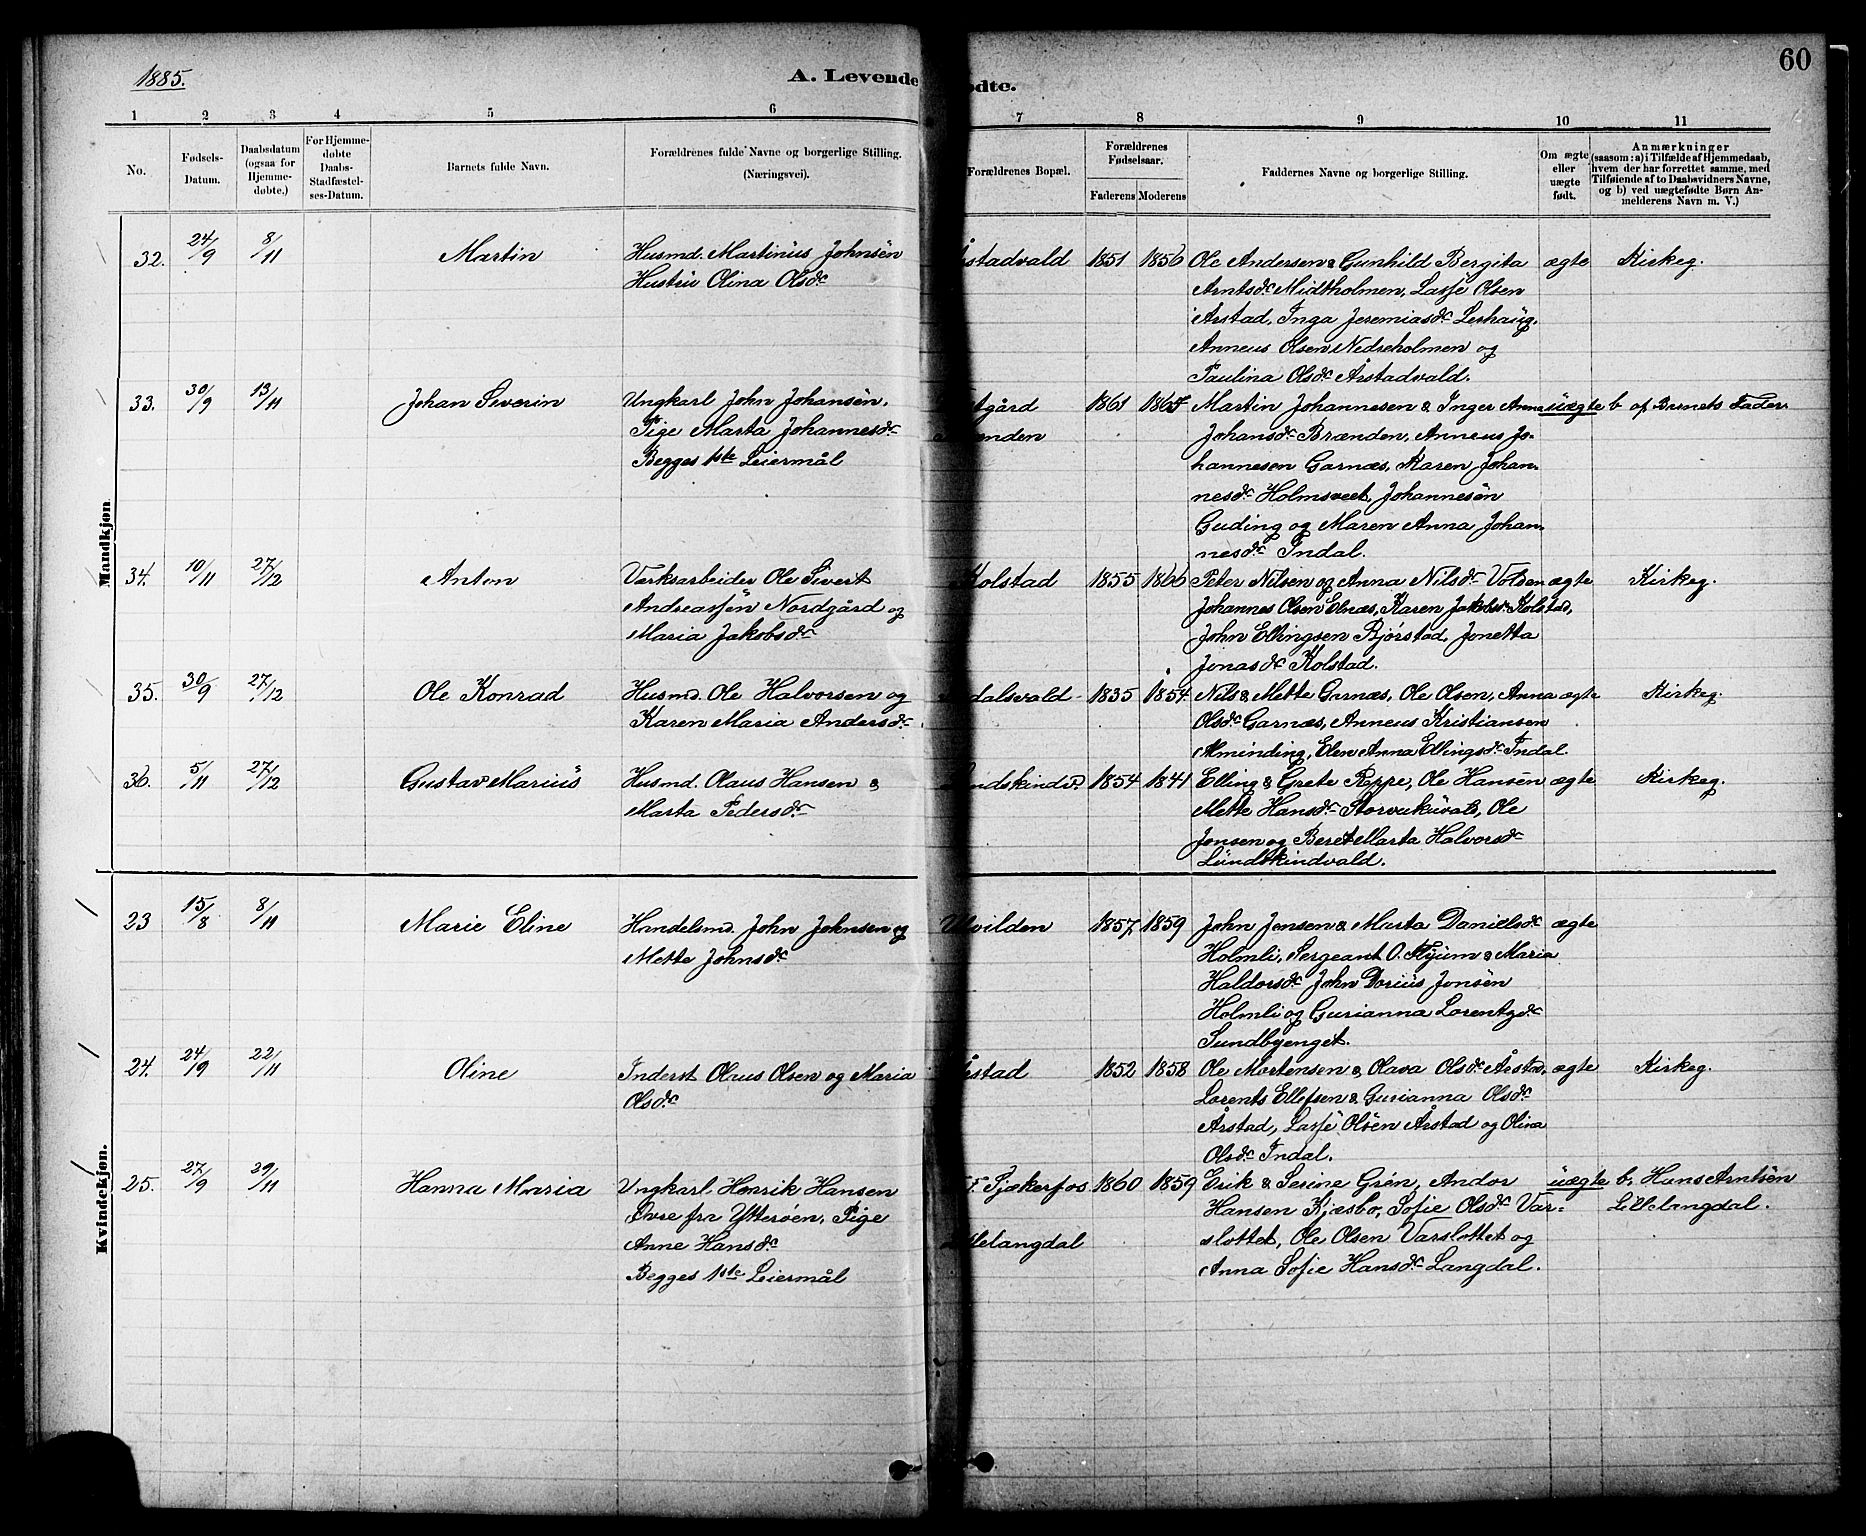 1885.
A. Levende
ødte.
60
1 2 3 4 5 6 7 8 9 10 11
No.
Fødsels-
Datum.
Daabsdatum
(ogsaa for
Hjemme-
døbte.)
For Hjemme-
døbte
Daabs-
Stadfæstel-
ses-Datum.
Barnets fulde Navn.
Forældrenes fulde Navne og borgerlige Stilling.
(Næringsvei).
Forældrenes Bopæl.
Forældrenes
Fødselsaar.
Faderens Moderens
Faddernes Navne og borgerlige Stilling.
Om ægte
eller
uægte
født.
Anmærkninger
(saasom: a) i Tilfælde af Hjemmedaab,
hvem der har forrettet samme, med
Tilføiende af to Daabsvidners Navne,
og b) ved uægtefødte Børn An-
melderens Navn m. V.)
Mandkjøn
32. 24/9 8/11 Martin
Husmd. Martinus Johnsen
Hustru Olina Olsdr
Årstadvald 1851 1856
Ole Andersen & Gunhild Bergita
Arntsdr Midtholmen, Lasse Olsen
Årstad, Inga Jeremiasdr Lerhaug,
Anneus Olsen Nedreholmen og
Paulina Olsdr Årstadvald.
ægte Kirkeg.
33. 30/9 13/11 Johan Severin
Ungkarl John Johansen,
Pige Marta Johannesdr
Begges 1ste Leiermål
tgård
enden
1861 1864
Martin Johannesen & Inger Anna
Johansdr Brænden, Anneus Jo-
hannesen Garnæs, Karen Johan-
nesdr Holmsveet, Johannesen
Guding og Maren Anna Johan-
nesdr Indal.
uægte b. af Barnets Fader
34. 10/11 27/12 Anton
Værksarbeider Ole Sivert
Andreassen Nordgård og
Maria Jakobsdr
Kolstad 1855 1866
Peter Nilsen og Anna Nilsdr Volsen
Johannes Olsen Elnæs, Karen Jakobsdr Kolstad,
John Ellingsen Bjørstad, Jonetta
Jonasdr Kolstad.
ægte Kirkeg.
35. 30/9 27/12 Ole Konrad
Husmd. Ole Halvorsen og
Karen Maria Andersdr
dalsvald 1835 1854
Nils & Mette Garnæs, Ole Olsen, Anna
Olsdr Garnæs, Anneus Kristiansen
Alminding, Elen Anna Ellingsdr Indal.
ægte Kirkeg.
36. 5/11 27/12 Gustav Marius
Husmd. Olaus Hansen &
Marta Pedersdr
ndskindv. 1854 1841
Elling & Grete Reppe, Ole Hansen
Mette Hansdr Storvukuvald, Ole
Jensen og Beret Marta Halvorsdr
Lundskindvald.
ægte Kirkeg.
Kvindekjøn.
23 15/8 8/11 Marie Eline
Handelsmd. John Johnsen og
Mette Johnsdr
vilden 1857 1859
John Jensen & Marta Danielsdr
Holmli, Sergeant O. Hjum & Maria
Haldorsdr John Dorius Jonsen
Holmli og Gurianna Lorentzdr
Sundbyenget.
ægte
24. 24/9 22/11 Oline
Inderst Olaus Olsen og Maria
Olsdr
Årstad 1852 1858
Ole Mortensen & Olava Olsdr Årstad,
Lorents Ellefsen & Gurianna Olsdr
Årstad, Lasse Olsen Årstad og Olina
Olsdr Indal.
ægte Kirkeg.
25. 27/9 29/11 Hanna Maria
Ungkarl Henrik Hansen
Øvre fra Ytterøen, Pige
Anne Hansdr
Begges 1ste Leiermål
F. Tjækerfos
Lillelangdal
1860 1859
Erik & Serine Grøn, Andor
Hansen Kjæsbo, Sofie Olsdr Var-
slottet, Ole Olsen Varslottet og
Anna Sofie Hansdr Langdal.
uægte b. Hans Arntsen
Lillelangdal.